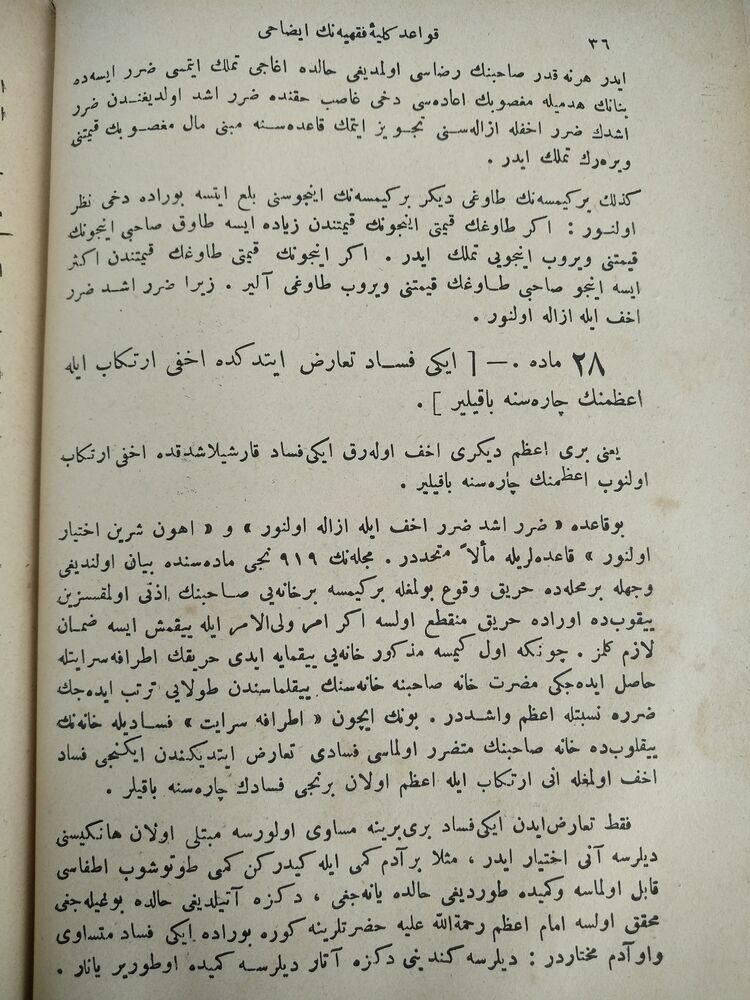 ٣٦
قواعد كليهٔ فقهيه‌نك ايضاحى
ايدر هرنه قدر صاحبنك رضاسى اولمديغى حالده اغاجى تملك ايتمسى ضرر ايسه‌ده
بنانك هدميله مغصوبك اعاده‌سى دخى غاصب حقنده ضرر اشد اولديغندن ضرر
اشدك ضرر اخفله ازاله‌سنى تجويز ايتمك قاعده‌سنه مبنى مال مغصوبك قيمتنى
ويره‌رك تملك ايدر .
كذلك بركيمسه‌نك طاوغى ديكر بركيمسه‌نك اينجوسنى بلع ايتسه بوراده دخى نظر
اولنور : اكر طاوغك قيمتى اينجونك قيمتندن زياده ايسه طاوق صاحبى اينجونك
قيمتنى ويروب اينجويى تملك ايدر . اكر اينجونك قيمتى طاوغك قيمتندن اكثر
ايسه اينجو صاحبى طاوغك قيمتنى ويروب طاوغى آلير . زيرا ضرر اشد ضرر
اخف ايله ازاله اولنور .
٢٨ ماده . — [ ايكى فساد تعارض ايتدكده اخفى ارتكاب ايله
اعظمنك چاره‌سنه باقيلير ] .
يعنى برى اعظم ديكرى اخف اوله‌رق ايكى فساد قارشيلاشدقده اخفى ارتكاب
اولنوب اعظمنك چاره‌سنه باقيلير .
بوقاعده « ضرر اشد ضرر اخف ايله ازاله اولنور » و « اهون شرين اختيار
اولنور » قاعده‌لريله مآلاً متحددر . مجله‌نك ٩١٩ نجى ماده‌سنده بيان اولنديغى
وجهله برمحله‌ده حريق وقوع بولمغله بركيمسه برخانه‌يى صاحبنك اذنى اولمقسزين
ييقوب‌ده اوراده حريق منقطع اولسه اكر امر ولى‌الامر ايله ييقمش ايسه ضمان
لازم كلمز . چونكه اول كيمسه مذكور خانه‌يى ييقمايه ايدى حريقك اطرافه‌سرايتله
حاصل ايده‌جكى مضرت خانه صاحبنه خانه‌سنك ييقلماسندن طولايى ترتب ايده‌جك
ضرره نسبتله اعظم واشددر . بونك ايچون « اطرافه سرايت » فساديله خانه‌نك
ييقلوب‌ده خانه صاحبنك متضرر اولماسى فسادى تعارض ايتديكندن ايكنجى فساد
اخف اولمغله انى ارتكاب ايله اعظم اولان برنجى فسادك چاره‌سنه باقيلر .
فقط تعارض‌ايدن ايكى‌فساد برى‌برينه مساوى اولورسه مبتلى اولان هانكيسنى
ديلرسه آنى اختيار ايدر ، مثلا برآدم كمى ايله كيدركن كمى طوتوشوب اطفاسى
قابل اولماسه وكميده طورديغى حالده يانه‌جغى ، دكزه آتيلديغى حالده بوغيله‌جغى
محقق اولسه امام اعظم رحمةالله عليه حضرتلرينه كوره بوراده ايكى فساد متساوى
واوآدم مختاردر : ديلرسه كندينى دكزه آتار ديلرسه كميده اوطورير يانار .